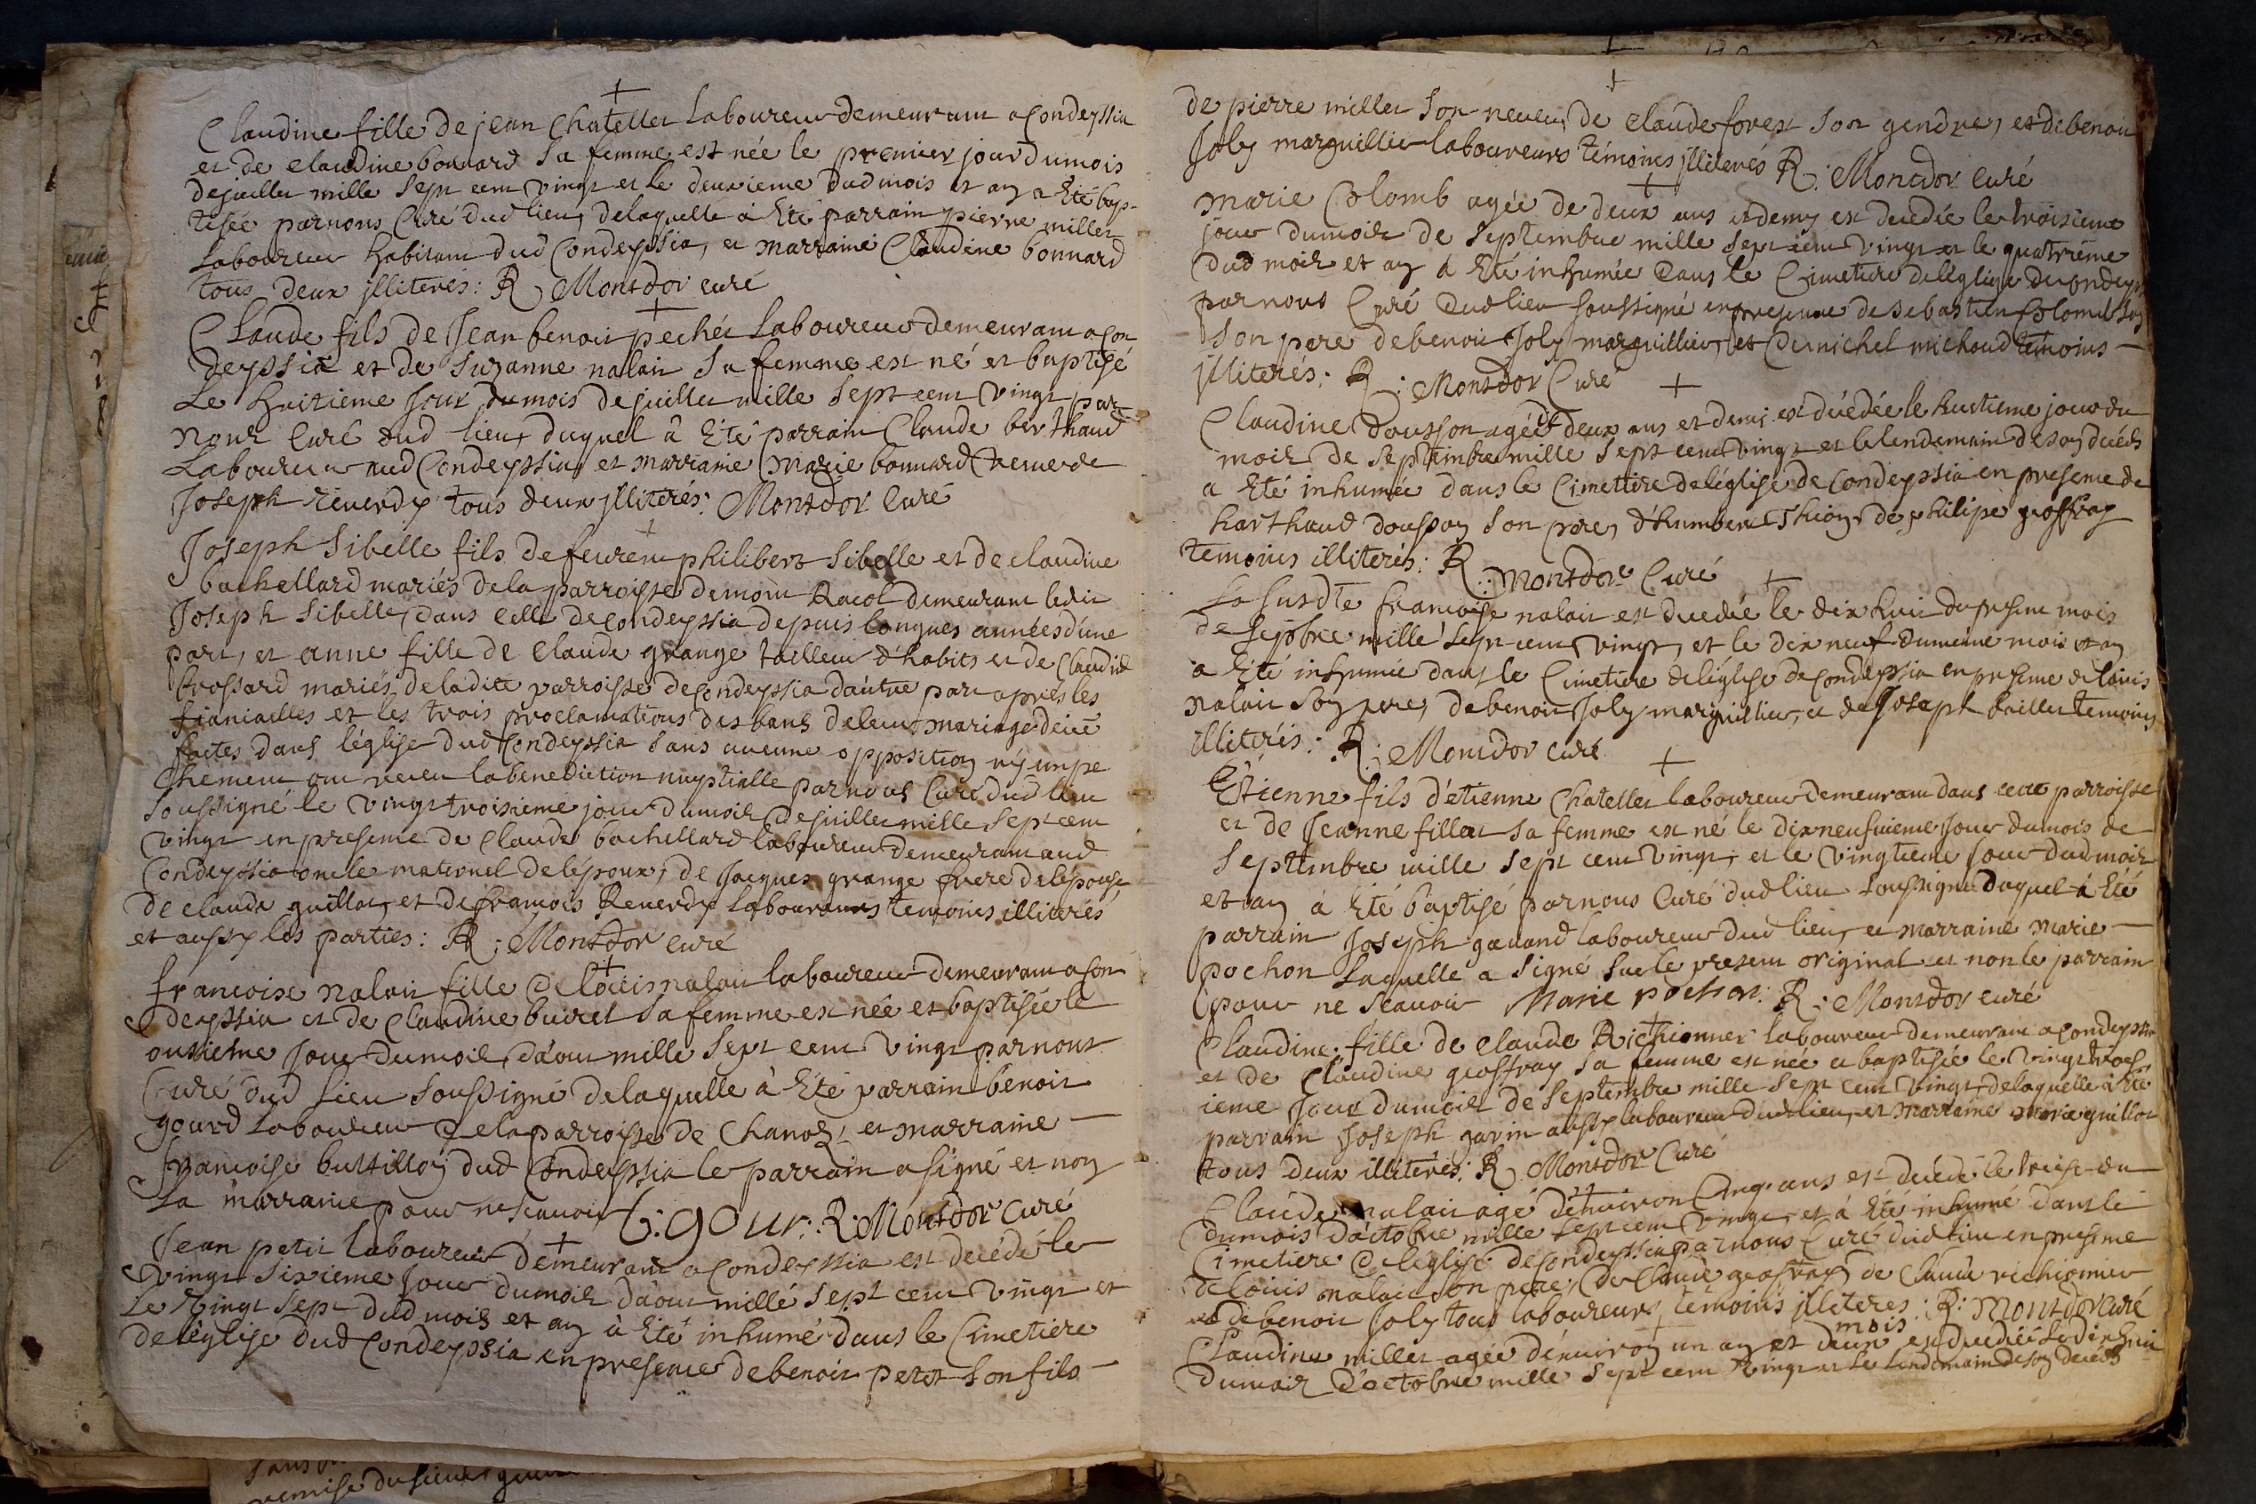 Claudine fille de jean Chatellet Laboureur demeurant a Condeyssia
et de claudine bonnard sa femme est née le premier jour du mois
de juillet mille sept cent vingt et le deuxieme dud mois et an a été bap-
tisée par nous Curé dud lieu, de laquelle a été parrain pierre millet
Laboureur habitant dud Condeyssia, et marraine Claudine bonnard
tous deux jlliterés: R. Montdor curé
Claude fils de Jean benoit pechet Laboureur demeurant a Con
deyssia et de suzanne nalait sa femme est né et baptisé
Le huitieme jour du mois de juillet mille sept cent vingt par
nous Curé dud lieu, duquel â été parrain Claude berthaud
Laboureur aud Condeyssia, et marraine Marie bonnard veuve de
Joseph reverdy tous deux jlliterés: Montdor Curé
Joseph sibelle fils de feu rem philibert sibelle et de claudine
bachellard mariés de la parroisse de demeurant ledit
Joseph sibelle, dans celle de condeyssia depuis longues années d'une
part, et anne fille de claude grange tailleur d'habits et de Claudine
frossard mariés de ladite parroisse de condeyssia d'autre part apres les
fiancailles et les trois proclamations des bans de leur mariage
faites dans l'église dud Condeyssia sans aucune opposition ny empe
chement ont receu la benediction nuptialle par nous Curé dud lieu
soussigné le vingt troisieme jour du mois de juillet mille sept cent
vingt en presence de claude bachellard laboureur demeurant aud
Condeyssia oncle maternel de l'époux, de Jacques grange frere de l'épouse
de claude guillot, et de francois Reverdy laboureurs temoins illiterés
et aussy les parties: R: Montdor curé
francoise nalait fille de Loüis nalait laboureur demeurant a Con
deyssia et de Claudine buiret sa femme est née et baptisée le
onzieme jour du mois d'aout mille sept cent vingt par nous
Curé dud lieu soussigné de laquelle à été parrain benoit
gourd Laboureur de la parroisse de Chanoz, et marraine
francoise buttillon dud Condeyssia le parrain a signé et non
La marraine pour ne scavoir b: gour: R: Montdor Curé
Jean petit laboureur demeurant a Condeyssia est decédé le
vingt sixieme jour du mois d'aout mille sept cent vingt et
Le vingt sept dud mois et an à été inhumé dans le Cimetiere
de l'église dud Condeyssia en presence de benoit petit son fils
de pierre millet son neveu, de claude foret son gendre, et de benoit
Joly marguillier laboureurs témoins jlliterés R: Montdor curé
Marie Colomb agée de deux ans et demy est decedée le troisieme
jour du mois de septembre mille sept cent vingt et le quatrieme
dud mois et an a été inhumée dans le Cimetiere de l'église de condeys
par nous Curé dud lieu soussigné en presence de sebastien Colomb
son pere de benoit Joly marguillier, et de michel michoud temoins
jlliterés: R: Montdor Curé
Claudine Dousson agée de deux ans et demi est décédée le huitieme jour du
mois de septembre mille sept cent vingt et le lendemain de son décéds
a été inhumée dans le Cimettire de l'église de Condeyssia en presence de
harthaud dousson son pere, d'humbert Thion, de philipe geoffray
temoins illiterés: R: Montdor Curé
La susdte francoise nalait est decedée le dix huit du present mois
de sepbre mille sept cent vingt, et le dix neuf du meme mois et an
a été inhumée dans le Cimetiere de l'église de Condeyssia en presence de louis
nalait son pere, de benoit Joly marguillier, et de Joseph temoins
illiterés: R: Montdor curé
Etienne fils d'étienne Chatellet laboureur demeurant dans cette parroisse
et de Jeanne fillon sa femme est né le dixneufvieme jour du mois de
septembre mille sept cent vingt, et le vingtieme jour dud mois
et an à été baptisé par nous Curé dud lieu soussigné duquel à été
parrain Joseph laboureur dud lieu, et marraine marie
pochon laquelle a signé sur le present original et non le parrain
pour ne scavoir Marie pochon: R: Montdor curé
Claudine fille de claude Richionner laboureur demeurant a Condeyssia
et de Claudine geoffray sa femme est née et baptisée le vingt trois
ieme jour du mois de septembre mille sept cent vingt, de laquelle à été
parrain Joseph gavin aussy laboureur dud lieu, et marraine marie guillot
tous deux illiterés: R. Montdor Curé
Claude nalait agé d'environ Cinq ans est décédé le treise du
du mois d'actobre mille sept cent vingt, et à été inhumé dans le
Cimetiere de l'église de Condeyssia par nous Curé dud lieu en presence
de louis nalait son pere, de Claude geoffray de Claude richionner
et de benoit Joly tous laboureurs, temoins jlliteres: R: Montdor curé
mois
Claudine millet agée d'environ un an et deux est decedée le dix huit
du mois d'octobre mille sept cent vingt et le lendemain de son decéds